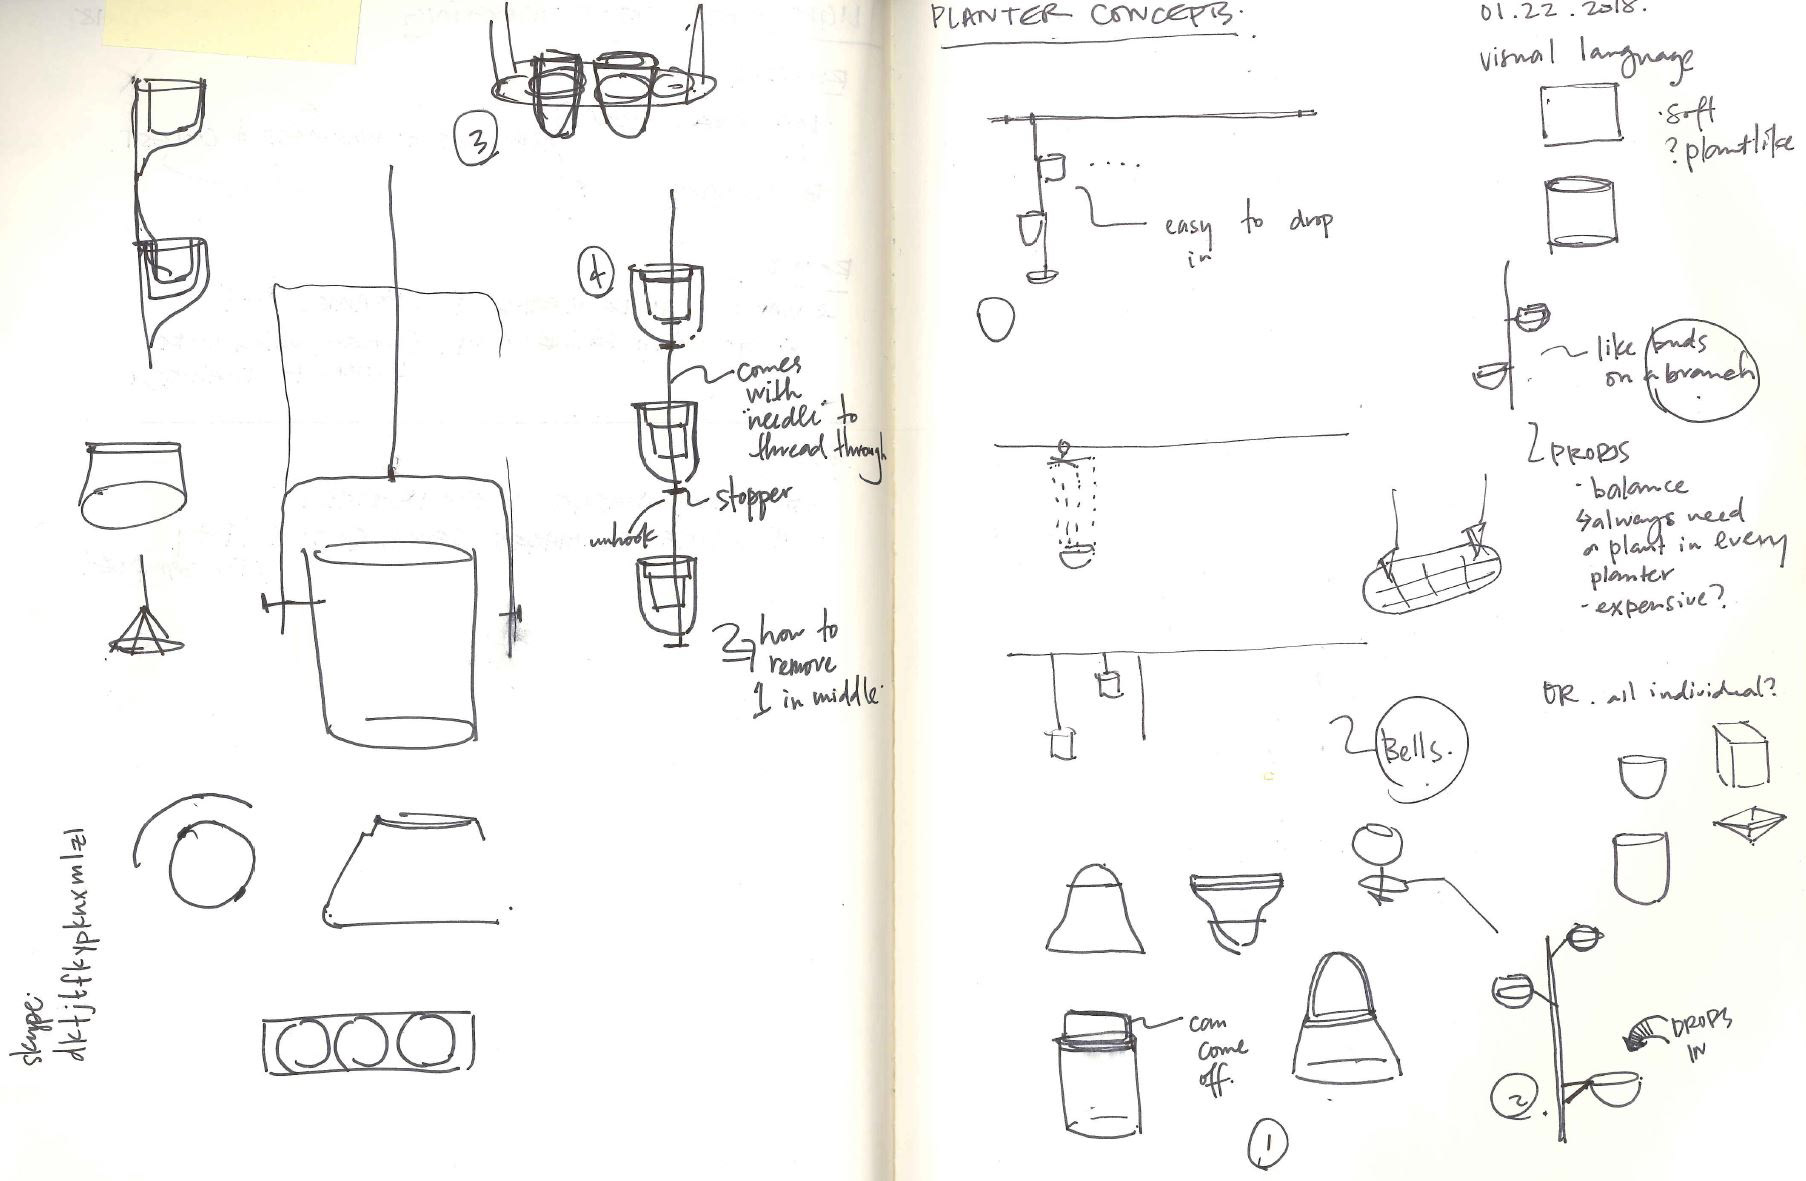 3
4
comes
with
"needle" to
thread through
stopper
unhook
how to
remove
1 in middle.
skype:
dktjtfkypknxmlzl
PLANTER CONCEPTS.
01.22.2018.
visual language
·soft
? plantlike
easy to drop
in
like buds
on a branch
PROPS
· balance
↳ always need
a plant in every
planter
- expensive?
OR . all individual?
Bells.
can
come
off.
1
DROPS
IN
2.